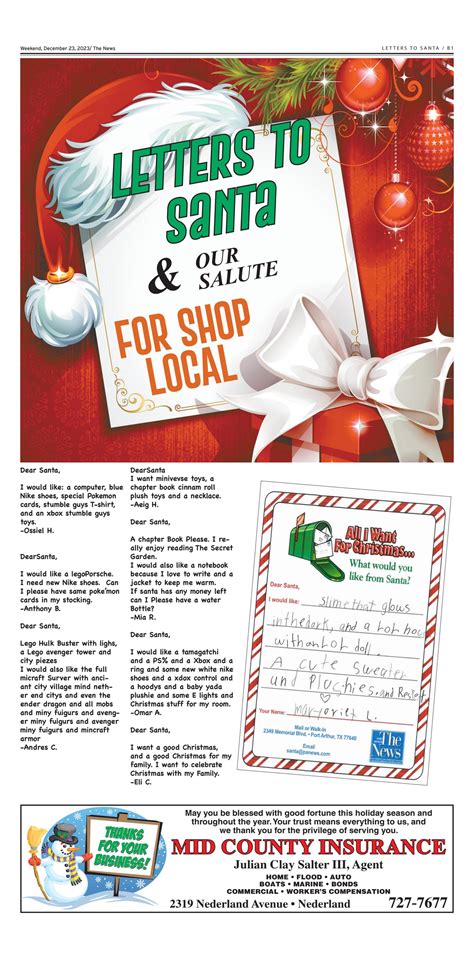 Weekend, December 23, 2023/ The News
LETTERS TO SANTA / B1
LETTERS TO
SANTA
& OUR
SALUTE
FOR SHOP
LOCAL
Dear Santa,
I would like: a computer, blue
Nike shoes, special Pokemon
cards, stumble guys T-shirt,
and an xbox stumble guys
toys.
-Ossiel H.
DearSanta,
I would like a legoPorsche.
I need new Nike shoes. Can
I please have same poke'mon
cards in my stocking.
-Anthony B.
Dear Santa,
Lego Hulk Buster with lighs,
a Lego avenger tower and
city piezes
I would also like the full
micraft Surver with anci-
ant city village mind neth-
er and citys and even the
ender dragon and all mobs
and miny fuigurs and aveng-
er miny fuigurs and avenger
miny fuigurs and mincraft
armor
-Andres C.
DearSanta
I want minivevse toys, a
chapter book cinnam roll
plush toys and a necklace.
-Aeig H.
Dear Santa,
A chapter Book Please. I re-
ally enjoy reading The Secret
Garden.
I would also like a notebook
because I love to write and a
jacket to keep me warm.
If santa has any money left
can I Please have a water
Bottle?
-Mia R.
Dear Santa,
I would like a tamagatchi
and a PS% and a Xbox and a
ring and some new white nike
shoes and a xdax control and
a hoodys and a baby yada
plushie and some E lights and
Christmas stuff for my room.
-Omar A.
Dear Santa,
I want a good Christmas,
and a good Christmas for my
family. I want to celebrate
Christmas with my Family.
-Eli C.
All I Want
For Christmas...
What would you
like from Santa?
Dear Santa,
I would like: Slime that glous
in the dark, and a LOL hoc
with an LOL doll.
A cute sweater
and Plughies. and
Your Name: L.
Mail or Walk-In
2349 Memorial Blvd. • Port Arthur, TX 77640
Email
santa@panews.com
The
News
THANKS
FOR YOUR
BUSINESS!
May you be blessed with good fortune this holiday season and
throughout the year. Your trust means everything to us, and
we thank you for the privilege of serving you.
MID COUNTY INSURANCE
Julian Clay Salter III, Agent
HOME • FLOOD • AUTO
BOATS • MARINE • BONDS
COMMERCIAL • WORKER'S COMPENSATION
2319 Nederland Avenue • Nederland 727-7677